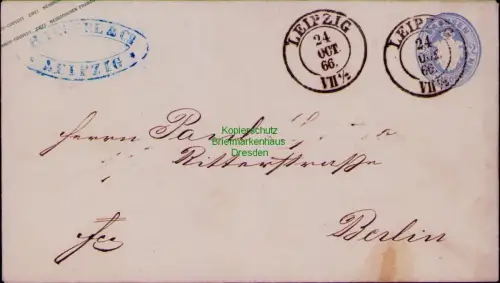 LEIPZIG
24
OCT
66.
VII½
LEIPZIG
24
OCT
66.
VII½
& Co
LEIPZIG
Herrn Paul
Kopierschutz
Briefmarkenhaus
Dresden
Ritterstraße
fco
Berlin